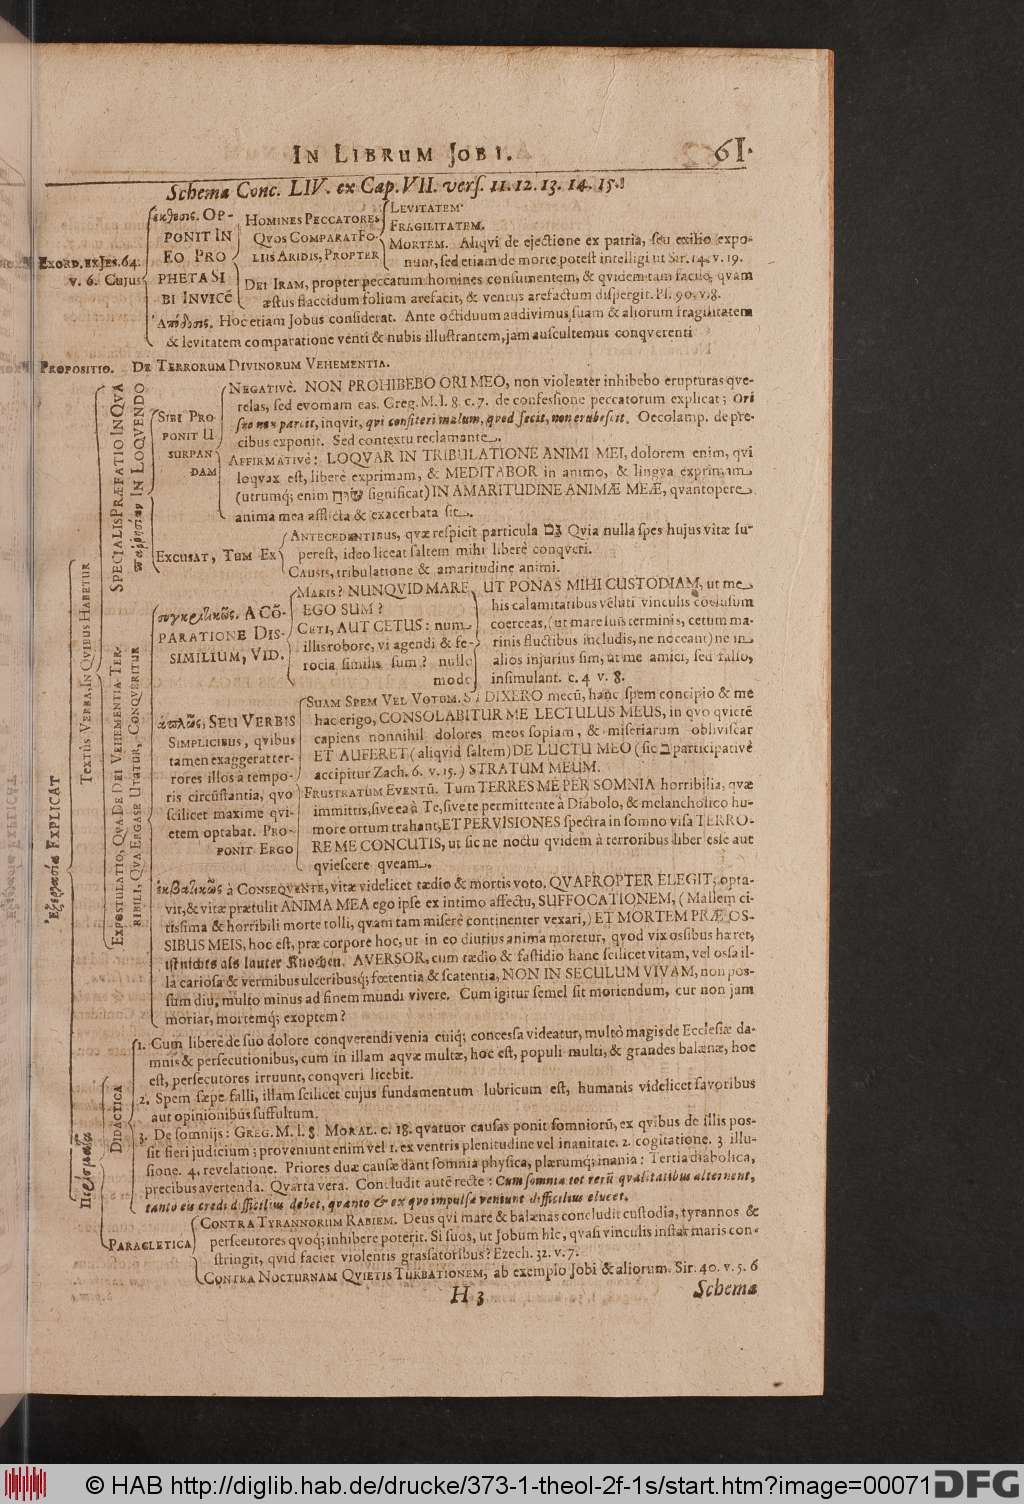 IN LIBRUM JOBI. 61.
Schema Conc. LIV. ex Cap. VII. vers. 11. 12. 13. 14. 15.
EXORD. EX JES. 64.
v. 6. Cujus
ἔκθεσις. OP-
PONIT IN
EO PRO
PHETA SI
BI INVICĒ
HOMINES PECCATORES
QVOS COMPARAT FO-
LIIS ARIDIS, PROPTER
LEVITATEM.
FRAGILITATEM.
MORTEM. Aliqvi de ejectione ex patria, seu exilio expo-
nunt, sed etiam de morte potest intelligi ut Sir. 14. v. 19.
DEI IRAM, propter peccatum homines consumentem, & qvidem tam facile, qvam
æstus flaccidum folium arefacit, & ventus arefactum dispergit. Ps. 90. v. 8.
Ἀπόδοσις. Hoc etiam Jobus considerat. Ante octiduum audivimus, suam & aliorum fragilitatem
& levitatem comparatione venti & nubis illustrantem, jam auscultemus conqverenti
PROPOSITIO. DE TERRORUM DIVINORUM VEHEMENTIA.
Ἐξεργασία EXPLICAT
TEXTUS VERBA, IN QVIBUS HABETUR
SPECIALIS PRÆFATIO IN QVA
παῤῥησίαν IN LOQVENDO
SIBI PRO-
PONIT U
SURPAN
DAM
NEGATIVè. NON PROHIBEBO ORI MEO, non violenter inhibebo erupturas qve-
relas, sed evomam eas. Greg. M. l. 8. c. 7. de confessione peccatorum explicat; Ori
suo non parcit, inqvit, qui confiteri malum, quod fecit, non erubescit. Oecolamp. de pre-
cibus exponit. Sed contextu reclamante.
AFFIRMATIVè: LOQVAR IN TRIBULATIONE ANIMI MEI, dolorem enim, qvi
loqvax est, liberè exprimam, & MEDITABOR in animo, & lingva exprimam
(utrumq; enim שיח significat) IN AMARITUDINE ANIMÆ MEÆ, qvantopere
anima mea afflicta & exacerbata sit.
EXCUSAT, TUM EX
ANTECEDENTIBUS, qvæ respicit particula גם Qvia nulla spes hujus vitæ su-
perest, ideo liceat saltem mihi liberè conqveri.
CAUSIS, tribulatione & amaritudine animi.
EXPOSTULATIO, QVA DE DEI VEHEMENTIA TER-
RIBILI, QVA ERGA SE UTATUR, CONQVERITUR
συγκριτικῶς. A CŌ-
PARATIONE DIS-
SIMILIUM, VID.
MARIS? NUNQVID MARE
EGO SUM?
CETI, AUT CETUS: num
illis robore, vi agendi & fe-
rocia similis sum? nullo
modo
UT PONAS MIHI CUSTODIAM, ut me
his calamitatibus veluti vinculis coelusum
coerceas, (ut mare suis terminis, cetum ma-
rinis fluctibus includis, ne noceant) ne in
alios injurius sim, ut me amici, sed falso,
insimulant. c. 4 v. 8.
ἁπλῶς, SEU VERBIS
SIMPLICIBUS, qvibus
tamen exaggerat ter-
rores illos à tempo-
ris circūstantia, qvo
scilicet maxime qvi-
etem optabat. PRO-
PONIT ERGO
SUAM SPEM VEL VOTUM. SI DIXERO mecū, hanc spem concipio & me
hac erigo, CONSOLABITUR ME LECTULUS MEUS, in qvo qvictē
capiens nonnihil dolores meos sopiam, & miseriarum obliviscar
ET AUFERET (aliqvid saltem) DE LUCTU MEO (sic ב participativè
accipitur Zach. 6. v. 15.) STRATUM MEUM.
FRUSTRATUM EVENTŪ. Tum TERRES ME PER SOMNIA horribilia, qvæ
immittis, sive ea à Te, sive te permittente à Diabolo, & melancholico hu-
more ortum trahant, ET PER VISIONES spectra in somno visa TERRO-
RE ME CONCUTIS, ut sic ne noctu qvidem à terroribus liber esse aut
qviescere qveam.
ἐκβατικῶς à CONSEQVENTE, vitæ videlicet tædio & mortis voto. QVAPROPTER ELEGIT, opta-
vit, & vitæ prætulit ANIMA MEA ego ipse ex intimo affectu, SUFFOCATIONEM, (Mallem ci-
tissima & horribili morte tolli, qvam tam miserè continenter vexari,) ET MORTEM PRÆ OS-
SIBUS MEIS, hoc est, præ corpore hoc, ut in eo diutius anima moretur, qvod vix ossibus hæret,
ist nichts als lauter Knochen. AVERSOR, cum tædio & fastidio hanc scilicet vitam, vel ossa il-
la cariosa & vermibus ulceribusq; fœtentia & scatentia, NON IN SECULUM VIVAM, non pos-
sum diu, multo minus ad finem mundi vivere. Cum igitur semel sit moriendum, cur non jam
moriar, mortemq; exoptem?
DIDACTICA
1. Cum liberè de suo dolore conqverendi venia cuiq; concessa videatur, multò magis de Ecclesiæ da-
mnis & persecutionibus, cum in illam aqvæ multæ, hoc est, populi multi, & grandes balænæ, hoc
est, persecutores irruunt, conqveri licebit.
2. Spem sæpe falli, illam scilicet cujus fundamentum lubricum est, humanis videlicet favoribus
aut opinionibus suffultum.
3. De somnijs: GREG. M. l. 8 MORAL. c. 18. qvatuor causas ponit somniorū, ex qvibus de illis pos-
sit fieri judicium; proveniunt enim vel 1. ex ventris plenitudine vel inanitate. 2. cogitatione. 3. illu-
sione. 4. revelatione. Priores duæ causæ dant somnia physica, plærumq; inania: Tertia diabolica,
precibus avertenda. Qvarta vera. Concludit autē recte: Cum somnia tot rerū qualitatibus alternent,
tanto eis credi difficilius debet, quanto & ex quo impulsu veniunt difficilius elucet.
PARACLETICA
CONTRA TYRANNORUM RABIEM. Deus qvi mare & balænas concludit custodia, tyrannos &
persecutores qvoq; inhibere poterit. Si suos, ut Jobum hîc, qvasi vinculis instar maris con-
stringit, qvid faciet violentis grassatoribus? Ezech. 32. v. 7.
CONTRA NOCTURNAM QVIETIS TURBATIONEM, ab exemplo Jobi & aliorum. Sir. 40. v. 5. 6
H 3 Schema
© HAB http://diglib.hab.de/drucke/373-1-theol-2f-1s/start.htm?image=00071 DFG